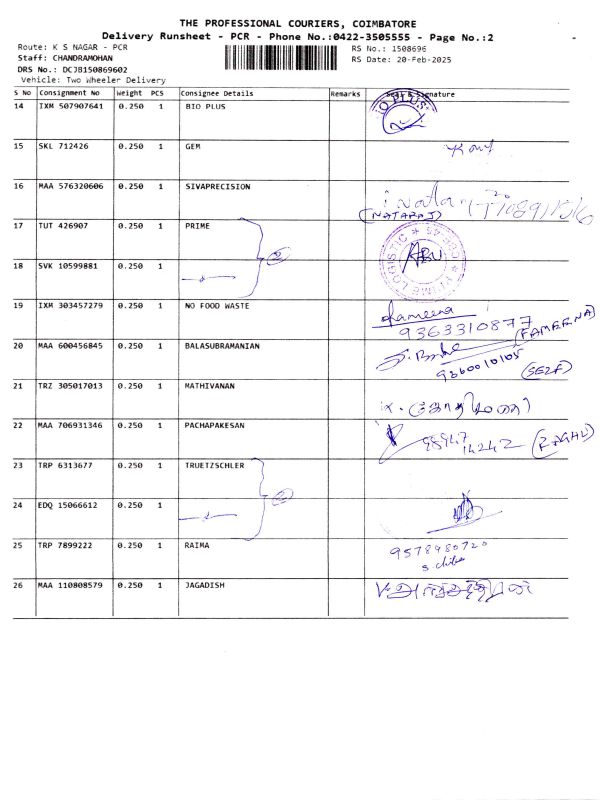 THE PROFESSIONAL COURIERS, COIMBATORE
Delivery Runsheet - PCR - Phone No.:0422-3505555 - Page No.:2
Route: K S NAGAR - PCR
RS No.: 1508696
Staff: CHANDRAMOHAN
RS Date: 20-Feb-2025
DRS No.: DCJB150869602
Vehicle: Two Wheeler Delivery
S No Consignment No Weight PCS Consignee Details Remarks Seal & Signature
14 IXM 507907641 0.250 1 BIO PLUS
15 SKL 712426 0.250 1 GEM
16 MAA 576320606 0.250 1 SIVAPRECISION
(NATARAJ)
17 TUT 426907 0.250 1 PRIME
2
PRIME LOGISTIC
CBE-45
ABU
18 SVK 10599881 0.250 1
19 IXM 303457279 0.250 1 NO FOOD WASTE
Fameena
9363310877
(FAMEENA)
20 MAA 600456845 0.250 1 BALASUBRAMANIAN
9860010105
(SELF)
21 TRZ 305017013 0.250 1 MATHIVANAN
22 MAA 706931346 0.250 1 PACHAPAKESAN
98947
14242
(RAGHU)
23 TRP 6313677 0.250 1 TRUETZSCHLER
2
24 EDQ 15066612 0.250 1
25 TRP 7899222 0.250 1 RAIMA
9578980720
26 MAA 110808579 0.250 1 JAGADISH